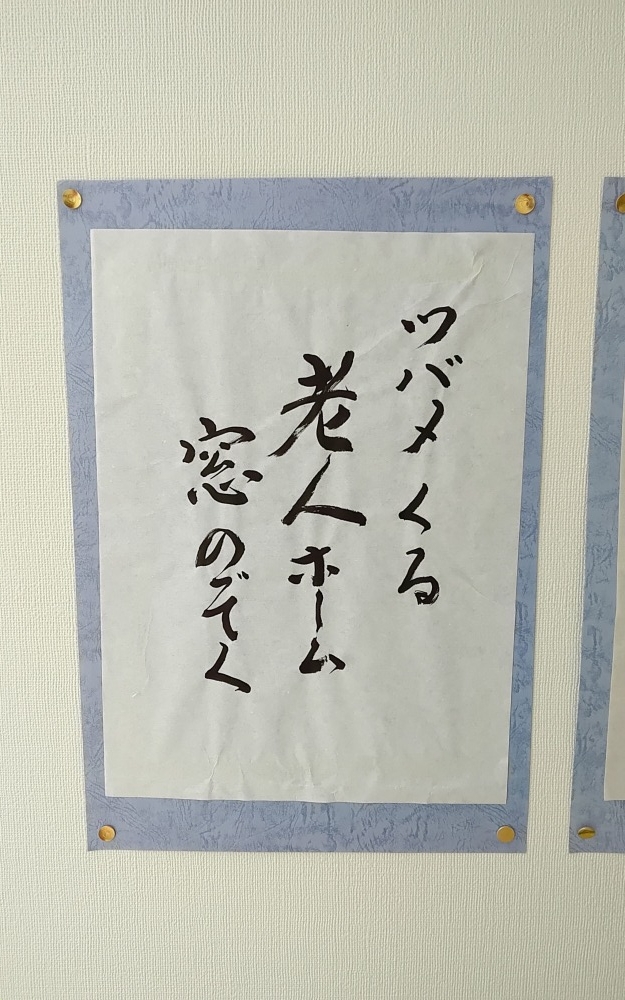 ツバメくる
老人ホーム
窓のぞく